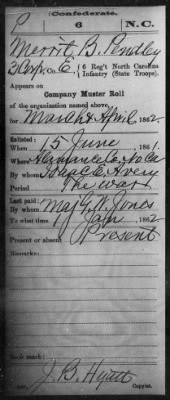 (Confederate.)
P 6 N.C.
Merritt B. Pendley
Corp., Co. E, 6 Reg't North Carolina
Infantry (State Troops).
Appears on
Company Muster Roll
of the organization named above,
for March & April, 1862.
Enlisted:
When 15 June, 1861.
Where Alamance Co. N. Ca
By whom Isaac E. Avery
Period The war
Last paid:
By whom Maj G. W. Jones
To what time 1 Jan, 1862.
Present or absent Present
Remarks:
Book mark:
J. B. Hyatt
Copyist.